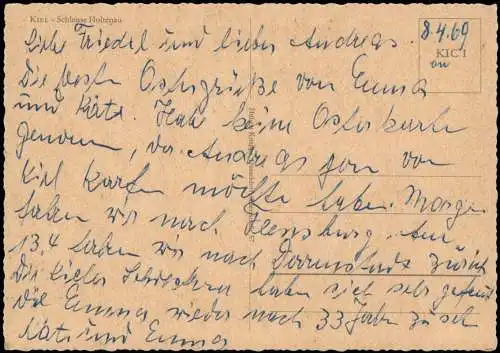 KIEL - Schleuse Holtenau
8.4.69
KIC 1
an
Liebe Friedel und lieber Andreas.
Die besten Ostergrüße von Emma
und Käte. Habe keine Osterkarte
genomen, da Andreas gern von
Kiel Karten möchte haben. Morgen
fahren wir nach Flensburg. Am
13.4 fahren wir nach Darmstadt zurück
Die lieben haben sich sehr gefreut
Die Emma wieder nach 33 Jahr zu seh
Käte und Emma